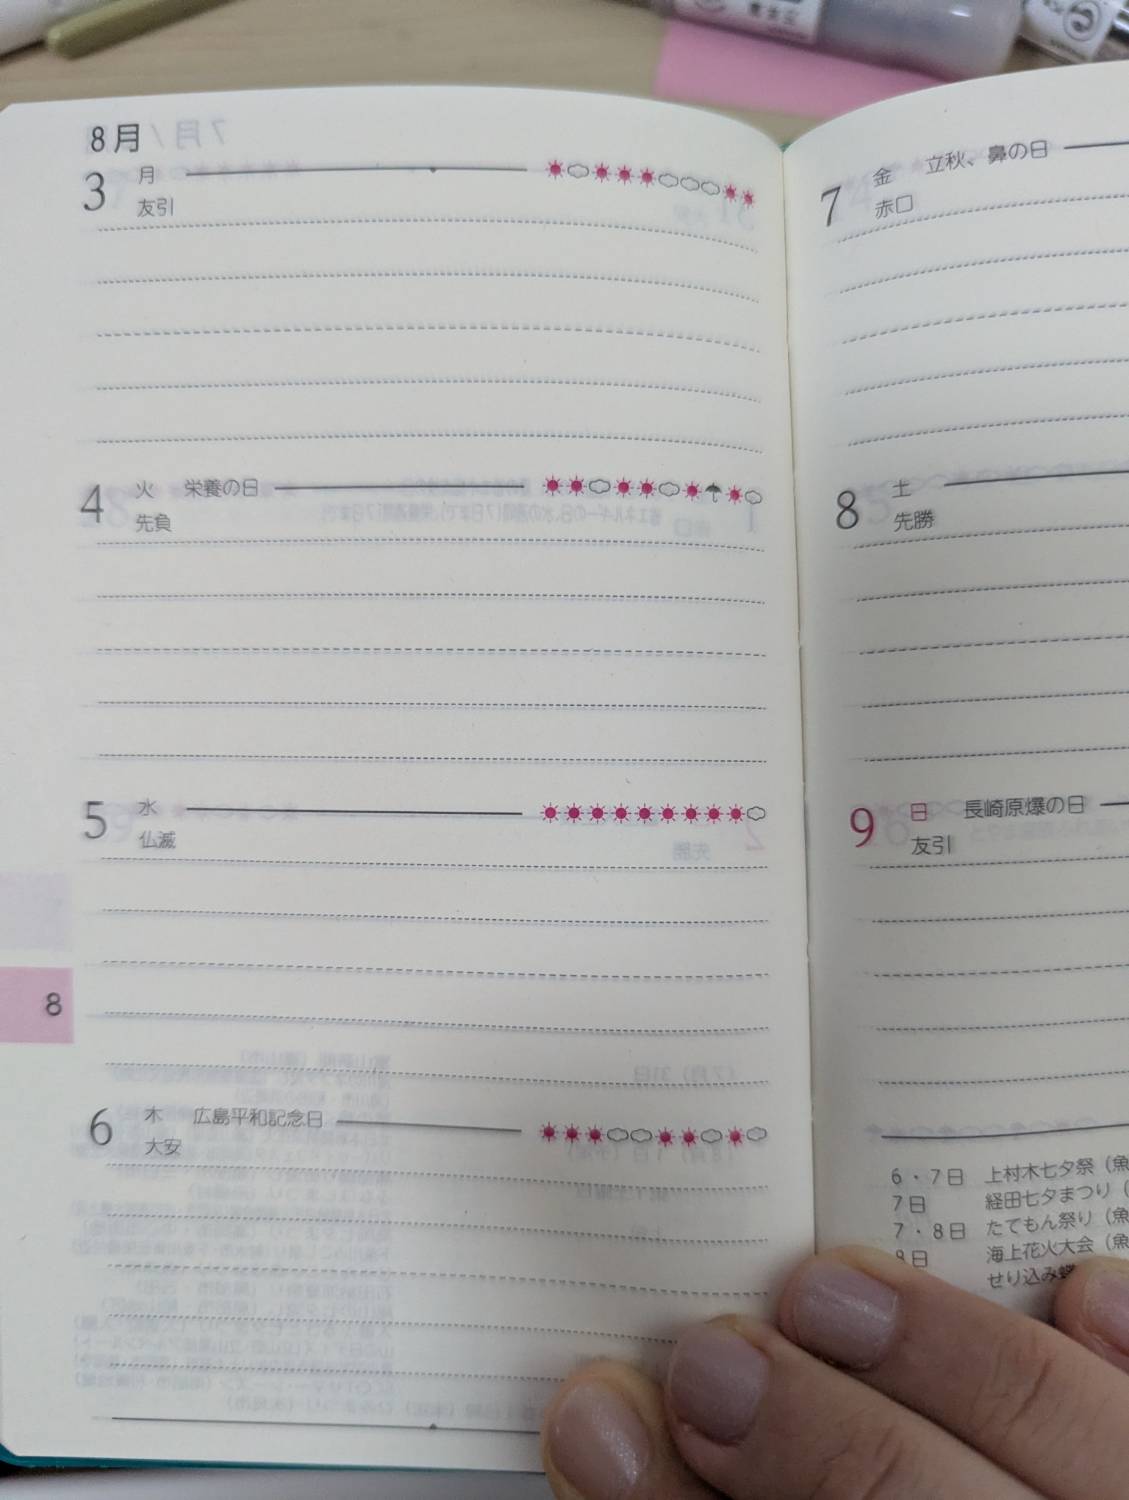 8月
3 月
友引
4 火 栄養の日
先負
5 水
仏滅
8
6 木 広島平和記念日
大安
7 金 立秋、鼻の日
赤口
8 土
先勝
9 日 長崎原爆の日
友引
6・7日 上村木七夕祭(魚
7日 経田七夕まつり(
7・8日 たてもん祭り(魚
8日 海上花火大会(魚
せり込み